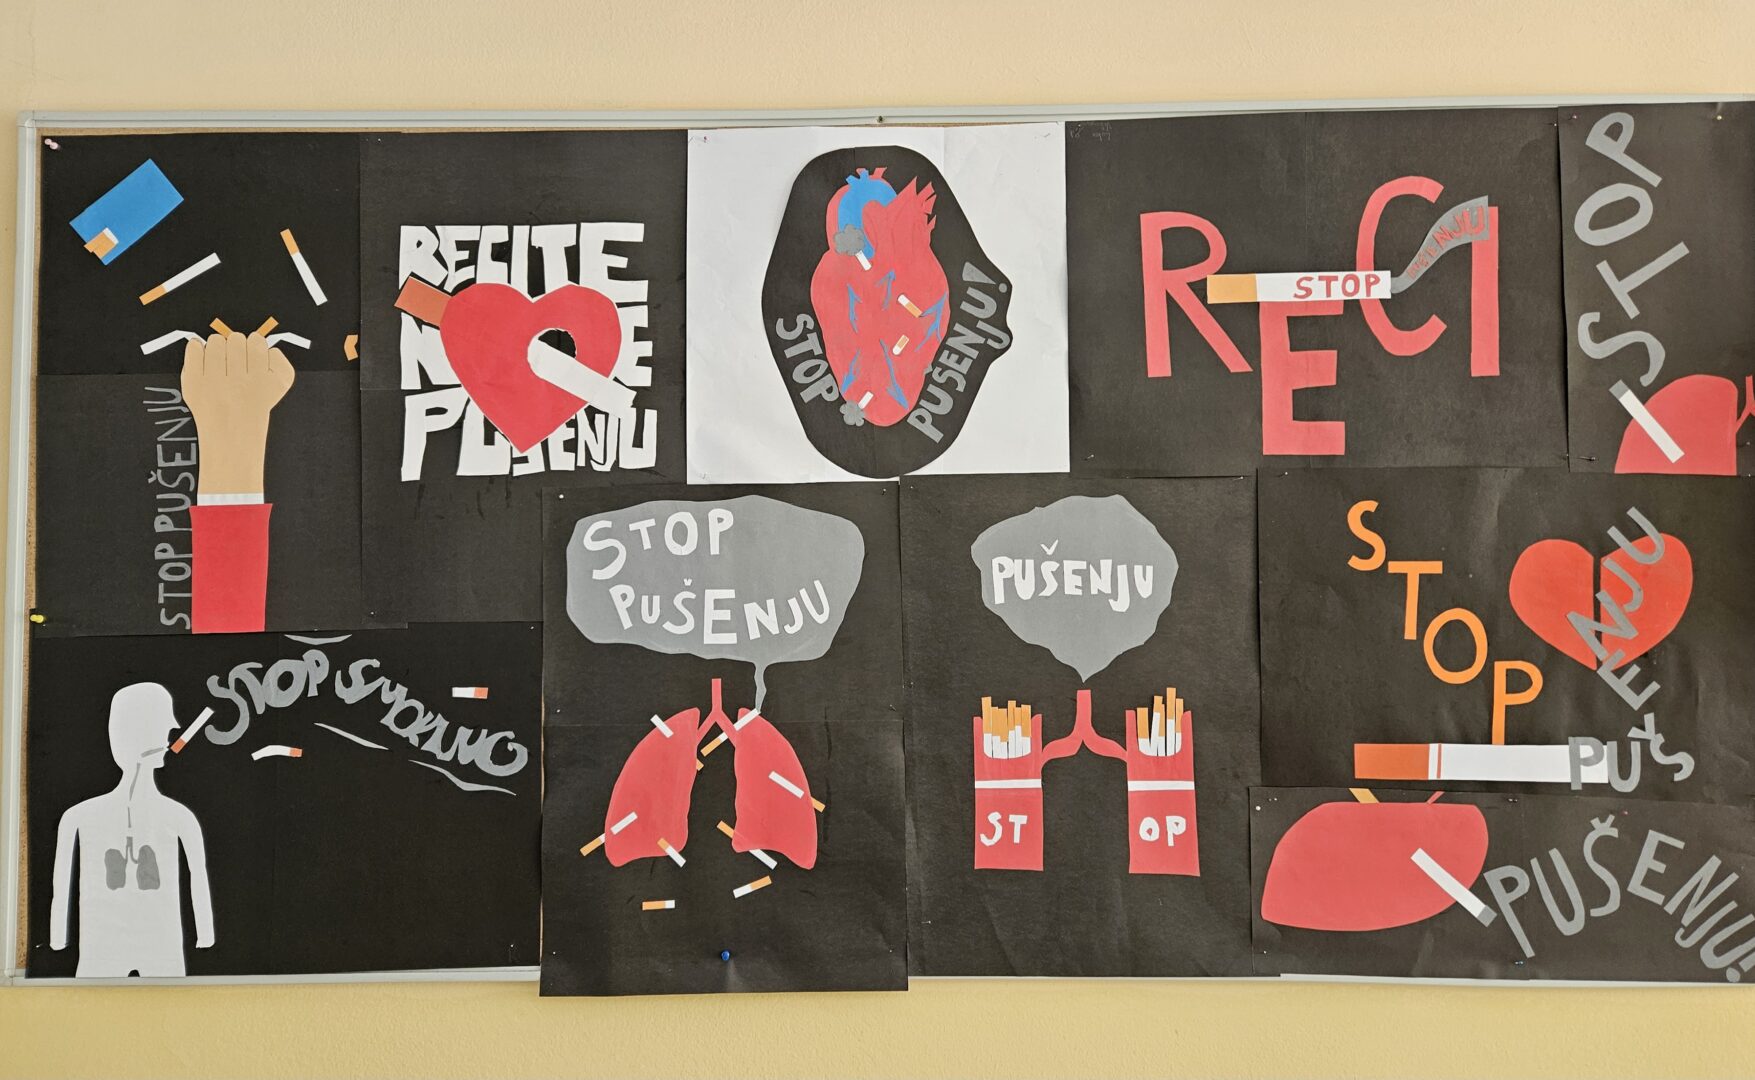 STOP PUŠENJU
RECITE
NE
PUŠENJU
STOP
PUŠENJU!
RECI
STOP
PUŠENJU
STOP
STOP
PUŠENJU
PUŠENJU
ST OP
STOP
PUŠENJU
PUŠENJU!